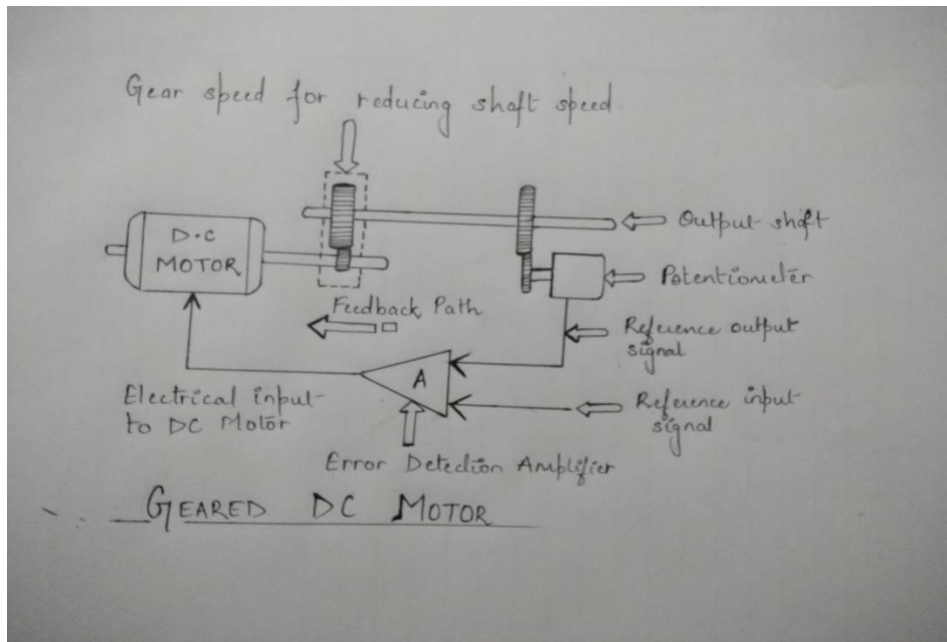 Gear speed for reducing shaft speed.
D.C
MOTOR
Output shaft
Potentiometer
Feedback Path
Reference output
signal
A
Electrical input
to DC Motor
Reference input
signal
Error Detection Amplifier
GEARED DC MOTOR